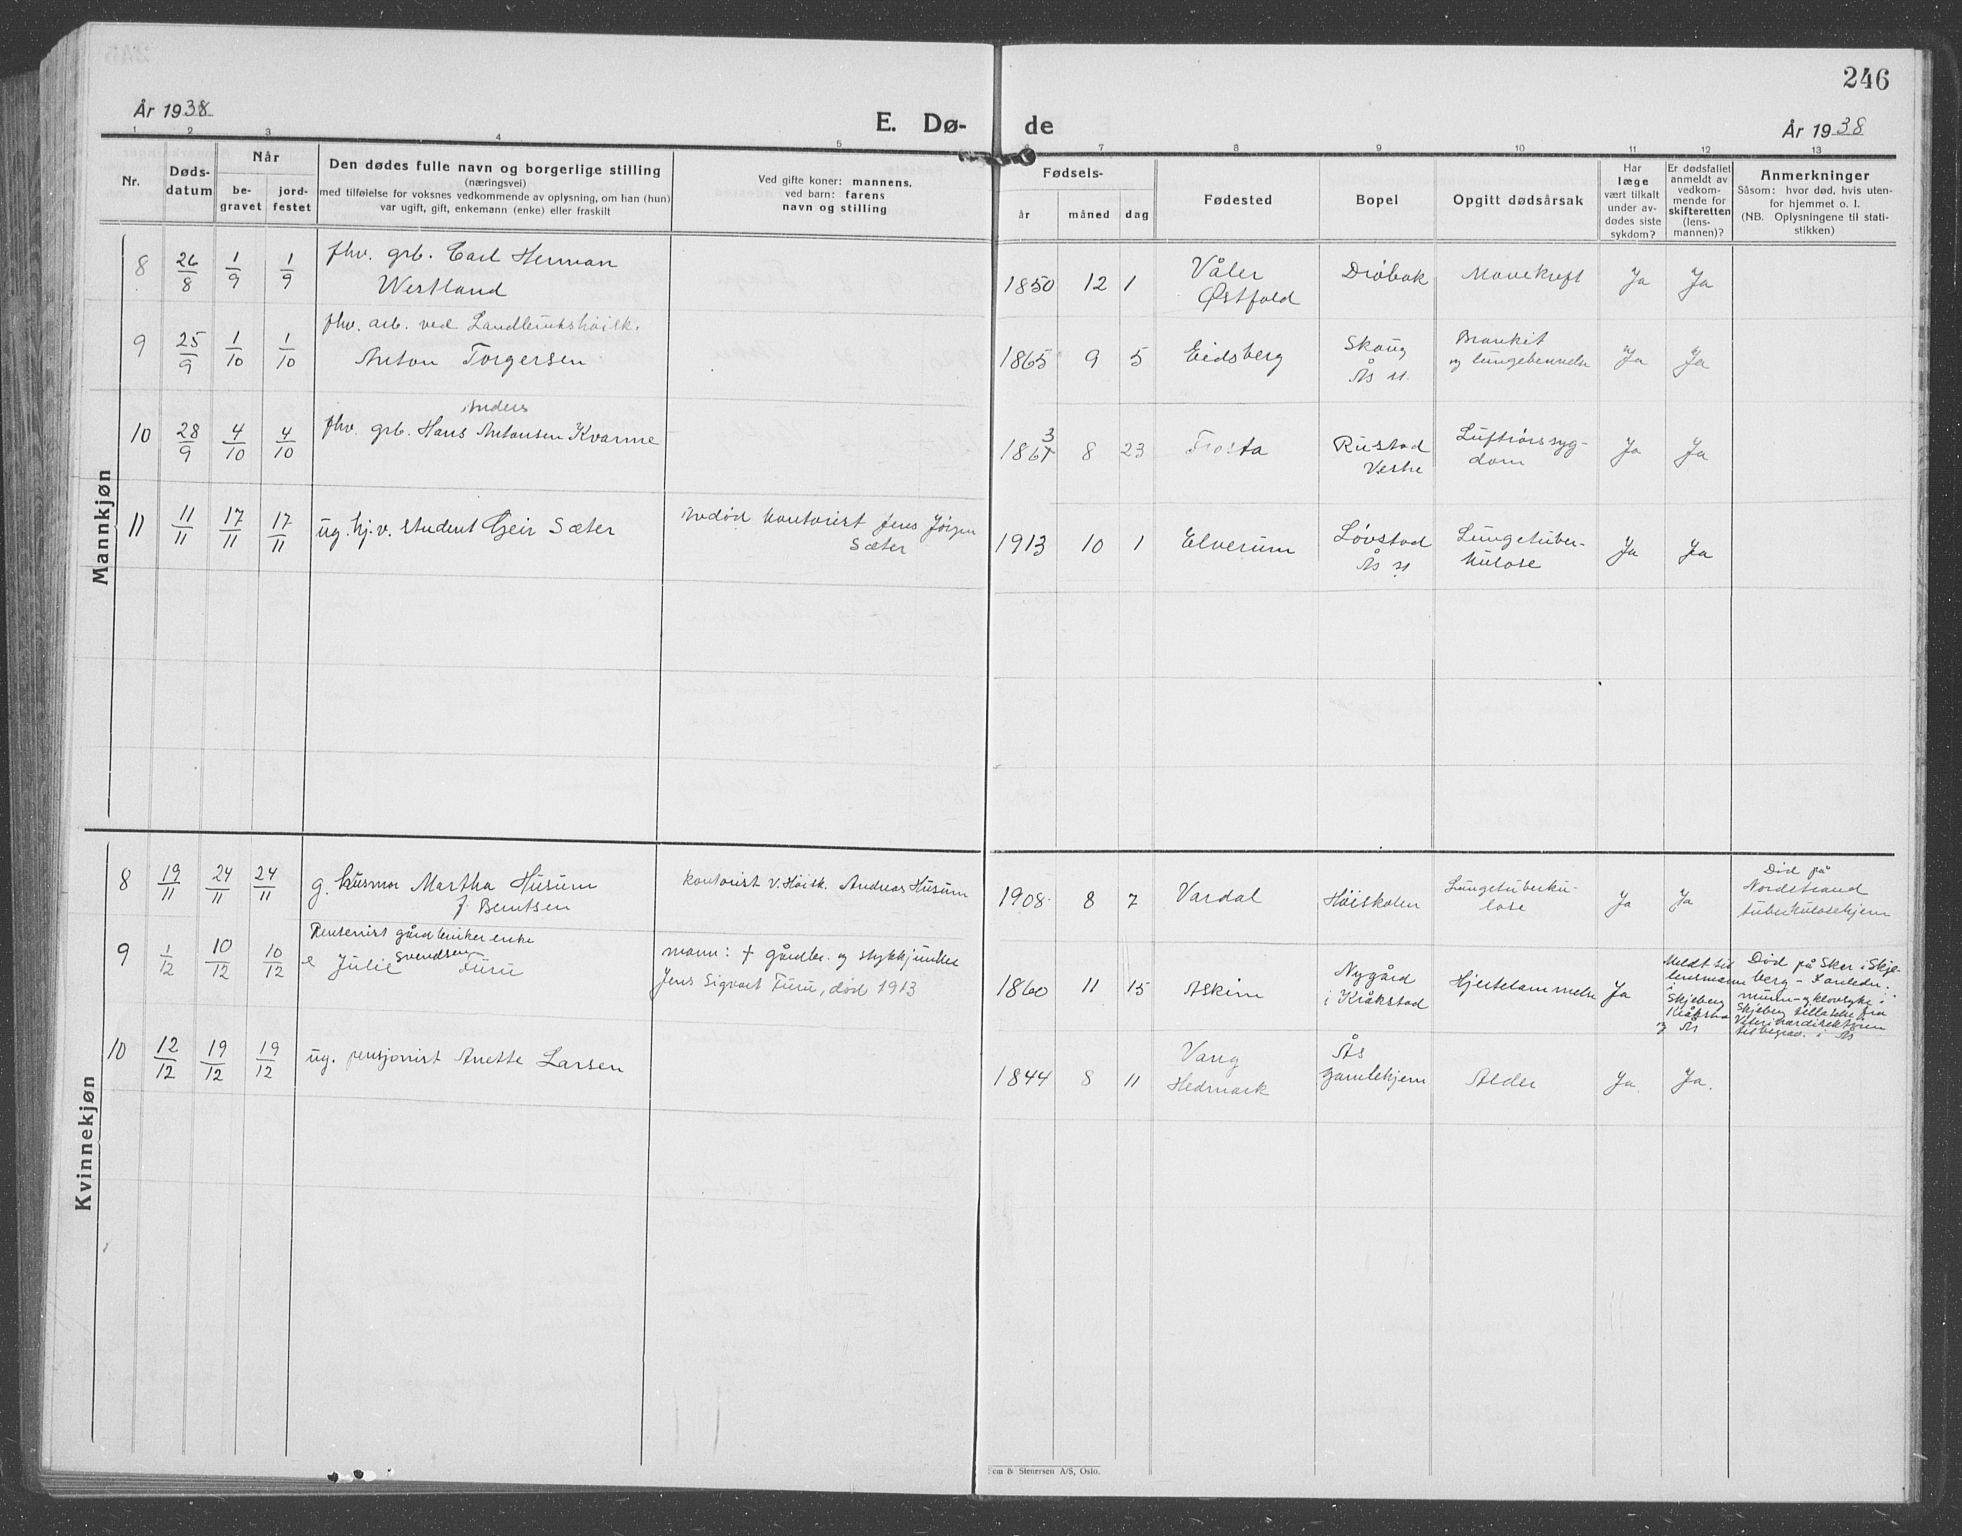 246
År 1938
E. Dø-
de
År 1938
1 2 3 4 5 6 7 8 9 10 11 12 13
Nr.
Døds-
datum
Når
be-
gravet
jord-
festet
Den dødes fulle navn og borgerlige stilling
(næringsvei)
med tilføielse for voksnes vedkommende av oplysning, om han (hun)
var ugift, gift, enkemann (enke) eller fraskilt
Ved gifte koner: mannens,
ved barn: farens
navn og stilling
Fødsels-
år
måned
dag
Fødested
Bopel
Opgitt dødsårsak
Har
læge
vært tilkalt
under av-
dødes siste
sykdom?
Er dødsfallet
anmeldt av
vedkom-
mende for
skifteretten
(lens-
mannen)?
Anmerkninger
Såsom: hvor død, hvis uten-
for hjemmet o. l.
(NB. Oplysningene til stati-
stikken)
Mannkjøn
8 26/8 1/9 1/9 fhv. grb. Carl Herman
Westland
1850 12 1 Våler
Østfold
Drøbak Mavekreft Ja Ja
9 25/9 1/10 1/10 fhv. arb. ved Landbrukshøisk.
Anton Torgersen
1865 9 5 Eidsberg Skaug
Ås st.
Bronkit
og lungebetennelse Ja Ja
10 28/9 4/10 4/10 fhv. grb. Hans Antonsen Kvarme
Anders
1867 3 8 23 Frosta Rustad
Vestre
Luftrørssyg-
dom Ja Ja
11 11/11 17/11 17/11 ug. hj.v. student Geir Sæter
Avdød kontorist Jens Jörgen
Sæter
1913 10 1 Elverum Løvstad
Ås st
Lungetuber-
kulose Ja Ja
Kvinnekjøn
8 19/11 24/11 24/11 g. husmor Martha Husum
f. Berntsen
kontorist v. Høisk. Andreas Husum
1908 8 7 Vardal Høiskolen Lungetuberku-
lose Ja Ja
Død på
Nordstrand
tuberkulosehjem
9 1/12 10/12 10/12 Pensjonist gårdbruker enke
e Julie Svendsen Furu
mann: + gårdbr. og stykkjunker
Jens Sigvart Furu, død 1913
1860 11 15 Askim Nygård
i Kråkstad
Hjertelammelse Ja
Meldt til
lensmann
i
Skjeberg
Kråkstad
og Ås
Død på Sker i Skje-
berg -
munn- og klovsyke i
Skjeberg tillatelse fra
Veterinærdirektøren
til begrav. i Ås
10 12/12 19/12 19/12 ug. pensjonist Anette Larsen
1844 8 11 Vang
Hedmark
Ås
gamlehjem Alder Ja Ja.
Sem & Stenersen A/S, Oslo.